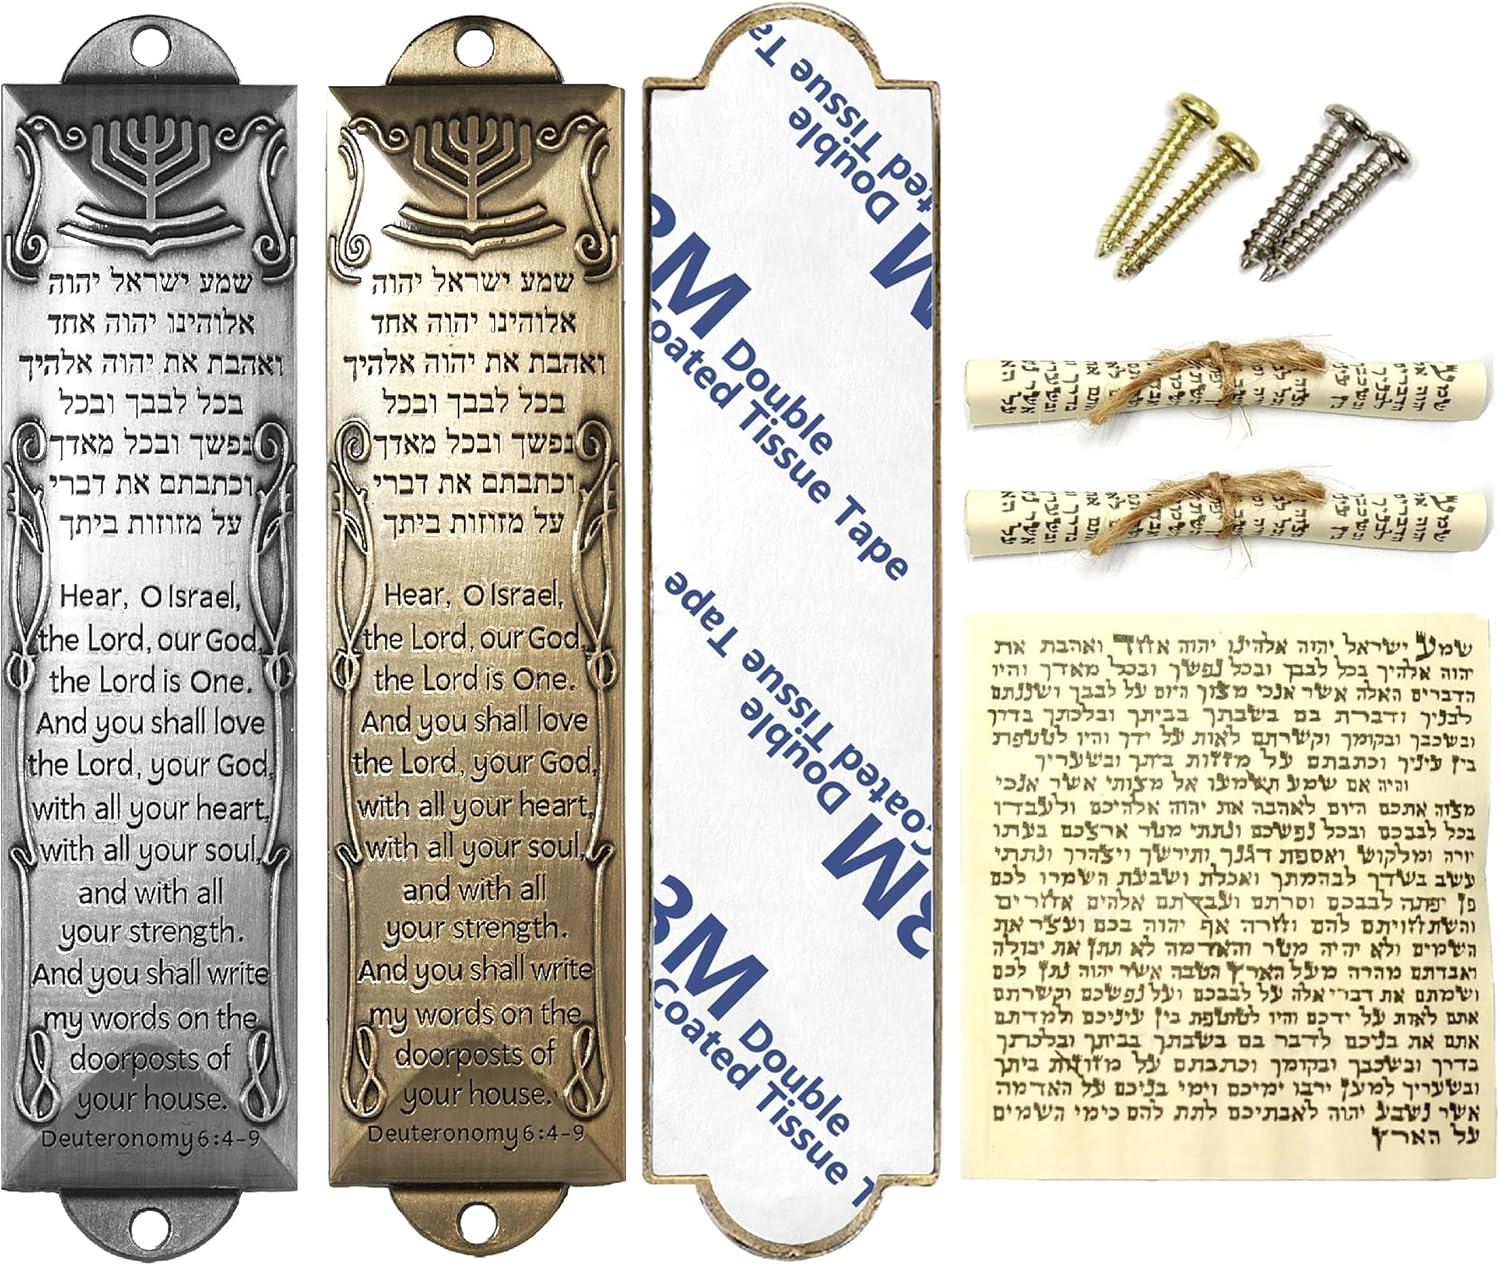 שמע ישראל יהוה
אלוהינו יהוה אחד
ואהבת את יהוה אלהיך
בכל לבבך ובכל
נפשך ובכל מאדך
וכתבתם את דברי
על מזוזות ביתך
Hear, O Israel,
the Lord, our God,
the Lord is One.
And you shall love
the Lord, your God,
with all your heart,
with all your soul,
and with all
your strength.
And you shall write
my words on the
doorposts of
your house.
Deuteronomy 6:4-9
שמע ישראל יהוה
אלוהינו יהוה אחד
ואהבת את יהוה אלהיך
בכל לבבך ובכל
נפשך ובכל מאדך
וכתבתם את דברי
על מזוזות ביתך
Hear, O Israel,
the Lord, our God,
the Lord is One.
And you shall love
the Lord, your God,
with all your heart,
with all your soul,
and with all
your strength.
And you shall write
my words on the
doorposts of
your house.
Deuteronomy 6:4-9
Double
Tissue T
3M Double
Coated Tissue Tape
Double
Coated Tissue Tape
3M
3M Double
Coated Tissue T
שמע ישראל יהוה אלהינו יהוה אחד ואהבת את
יהוה אלהיך בכל לבבך ובכל נפשך ובכל מאדך והיו
הדברים האלה אשר אנכי מצוך היום על לבבך ושננתם
לבניך ודברת בם בשבתך בביתך ובלכתך בדרך
ובשכבך ובקומך וקשרתם לאות על ידך והיו לטטפת
בין עיניך וכתבתם על מזזות ביתך ובשעריך
והיה אם שמע תשמעו אל מצותי אשר אנכי
מצוה אתכם היום לאהבה את יהוה אלהיכם ולעבדו
בכל לבבכם ובכל נפשכם ונתתי מטר ארצכם בעתו
יורה ומלקוש ואספת דגנך ותירשך ויצהרך ונתתי
עשב בשדך לבהמתך ואכלת ושבעת השמרו לכם
פן יפתה לבבכם וסרתם ועבדתם אלהים אחרים
והשתחויתם להם וחרה אף יהוה בכם ועצר את
השמים ולא יהיה מטר והאדמה לא תתן את יבולה
ואבדתם מהרה מעל הארץ הטבה אשר יהוה נתן לכם
ושמתם את דברי אלה על לבבכם ועל נפשכם וקשרתם
אתם לאות על ידכם והיו לטוטפת בין עיניכם ולמדתם
אתם את בניכם לדבר בם בשבתך בביתך ובלכתך
בדרך ובשכבך ובקומך וכתבתם על מזוזות ביתך
ובשעריך למען ירבו ימיכם וימי בניכם על האדמה
אשר נשבע יהוה לאבתיכם לתת להם כימי השמים
על הארץ